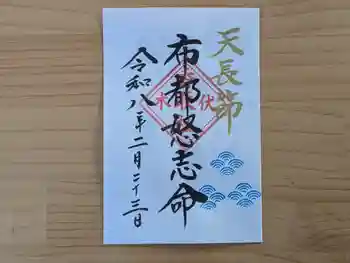 天長節
布都怒志命
令和八年二月二十三日